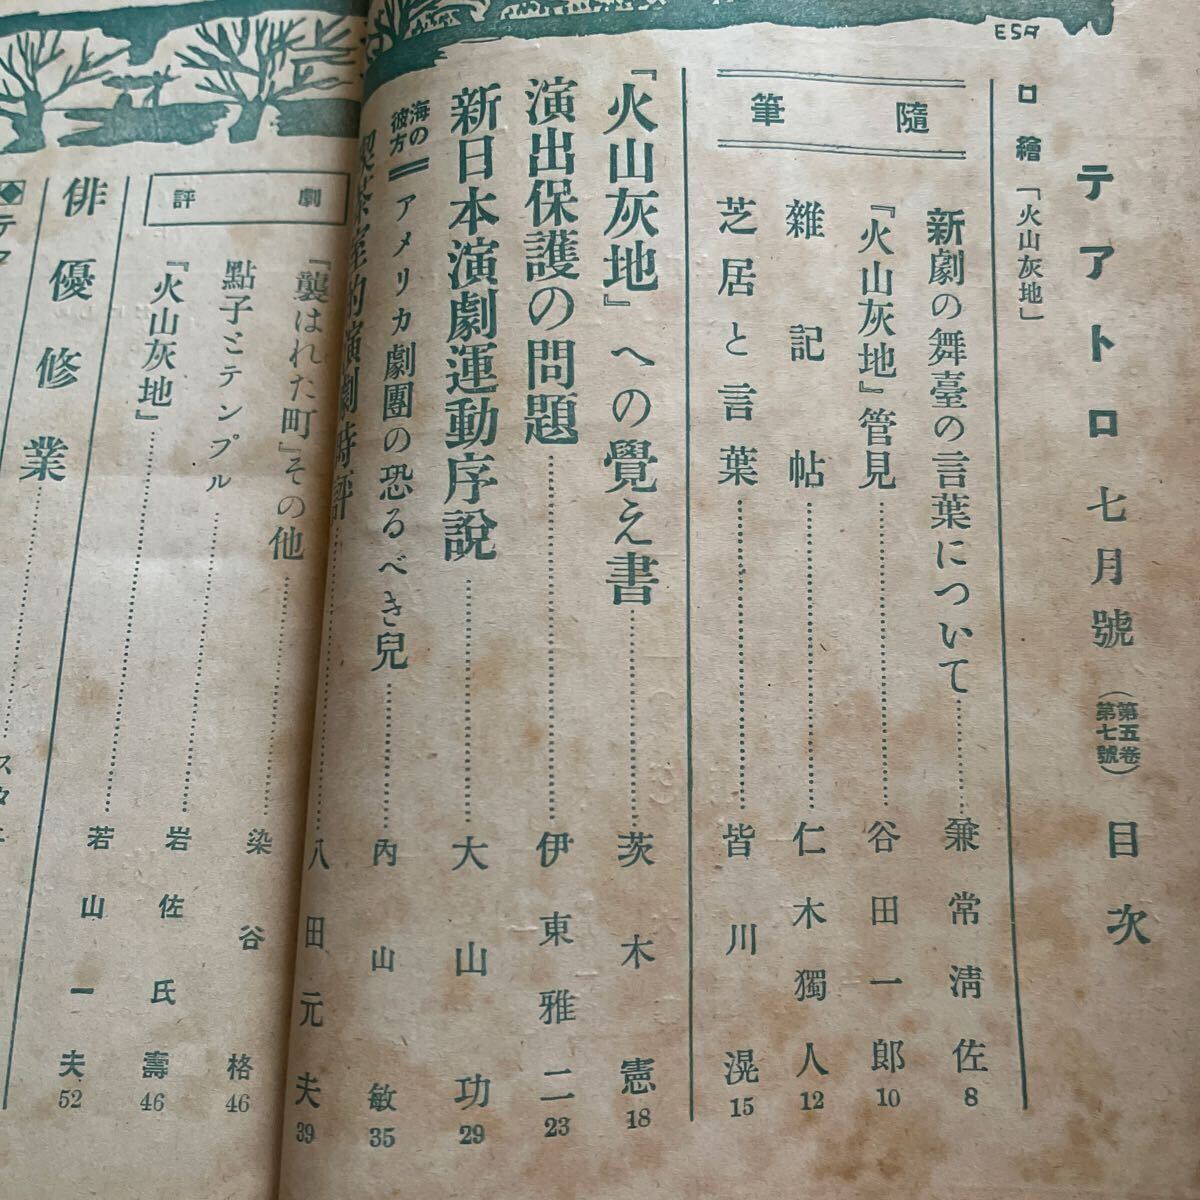 ESA
テアトロ 七月號 (第五卷 第七號) 目次
口繪「火山灰地」
隨筆
新劇の舞臺の言葉について……兼常清佐 8
『火山灰地』管見……谷田一郎 10
雜記帖……仁木獨人 12
芝居と言葉……皆川滉 15
「火山灰地」への覺え書……茨木憲 18
演出保護の問題……伊東雅二 23
新日本演劇運動序說……大山功 29
海の彼方 アメリカ劇團の恐るべき兒……內山敏 35
喫茶室的演劇時評……八田元夫 39
劇評
『襲はれた町』その他……染谷格 46
點子ミテンプル……岩佐氏壽 46
『火山灰地』……若山一夫 52
俳優修業……スタニ
◆テア